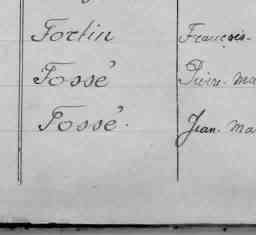 Fortin François-
Fossé Pierre-Ma
Fossé. Jean-Ma